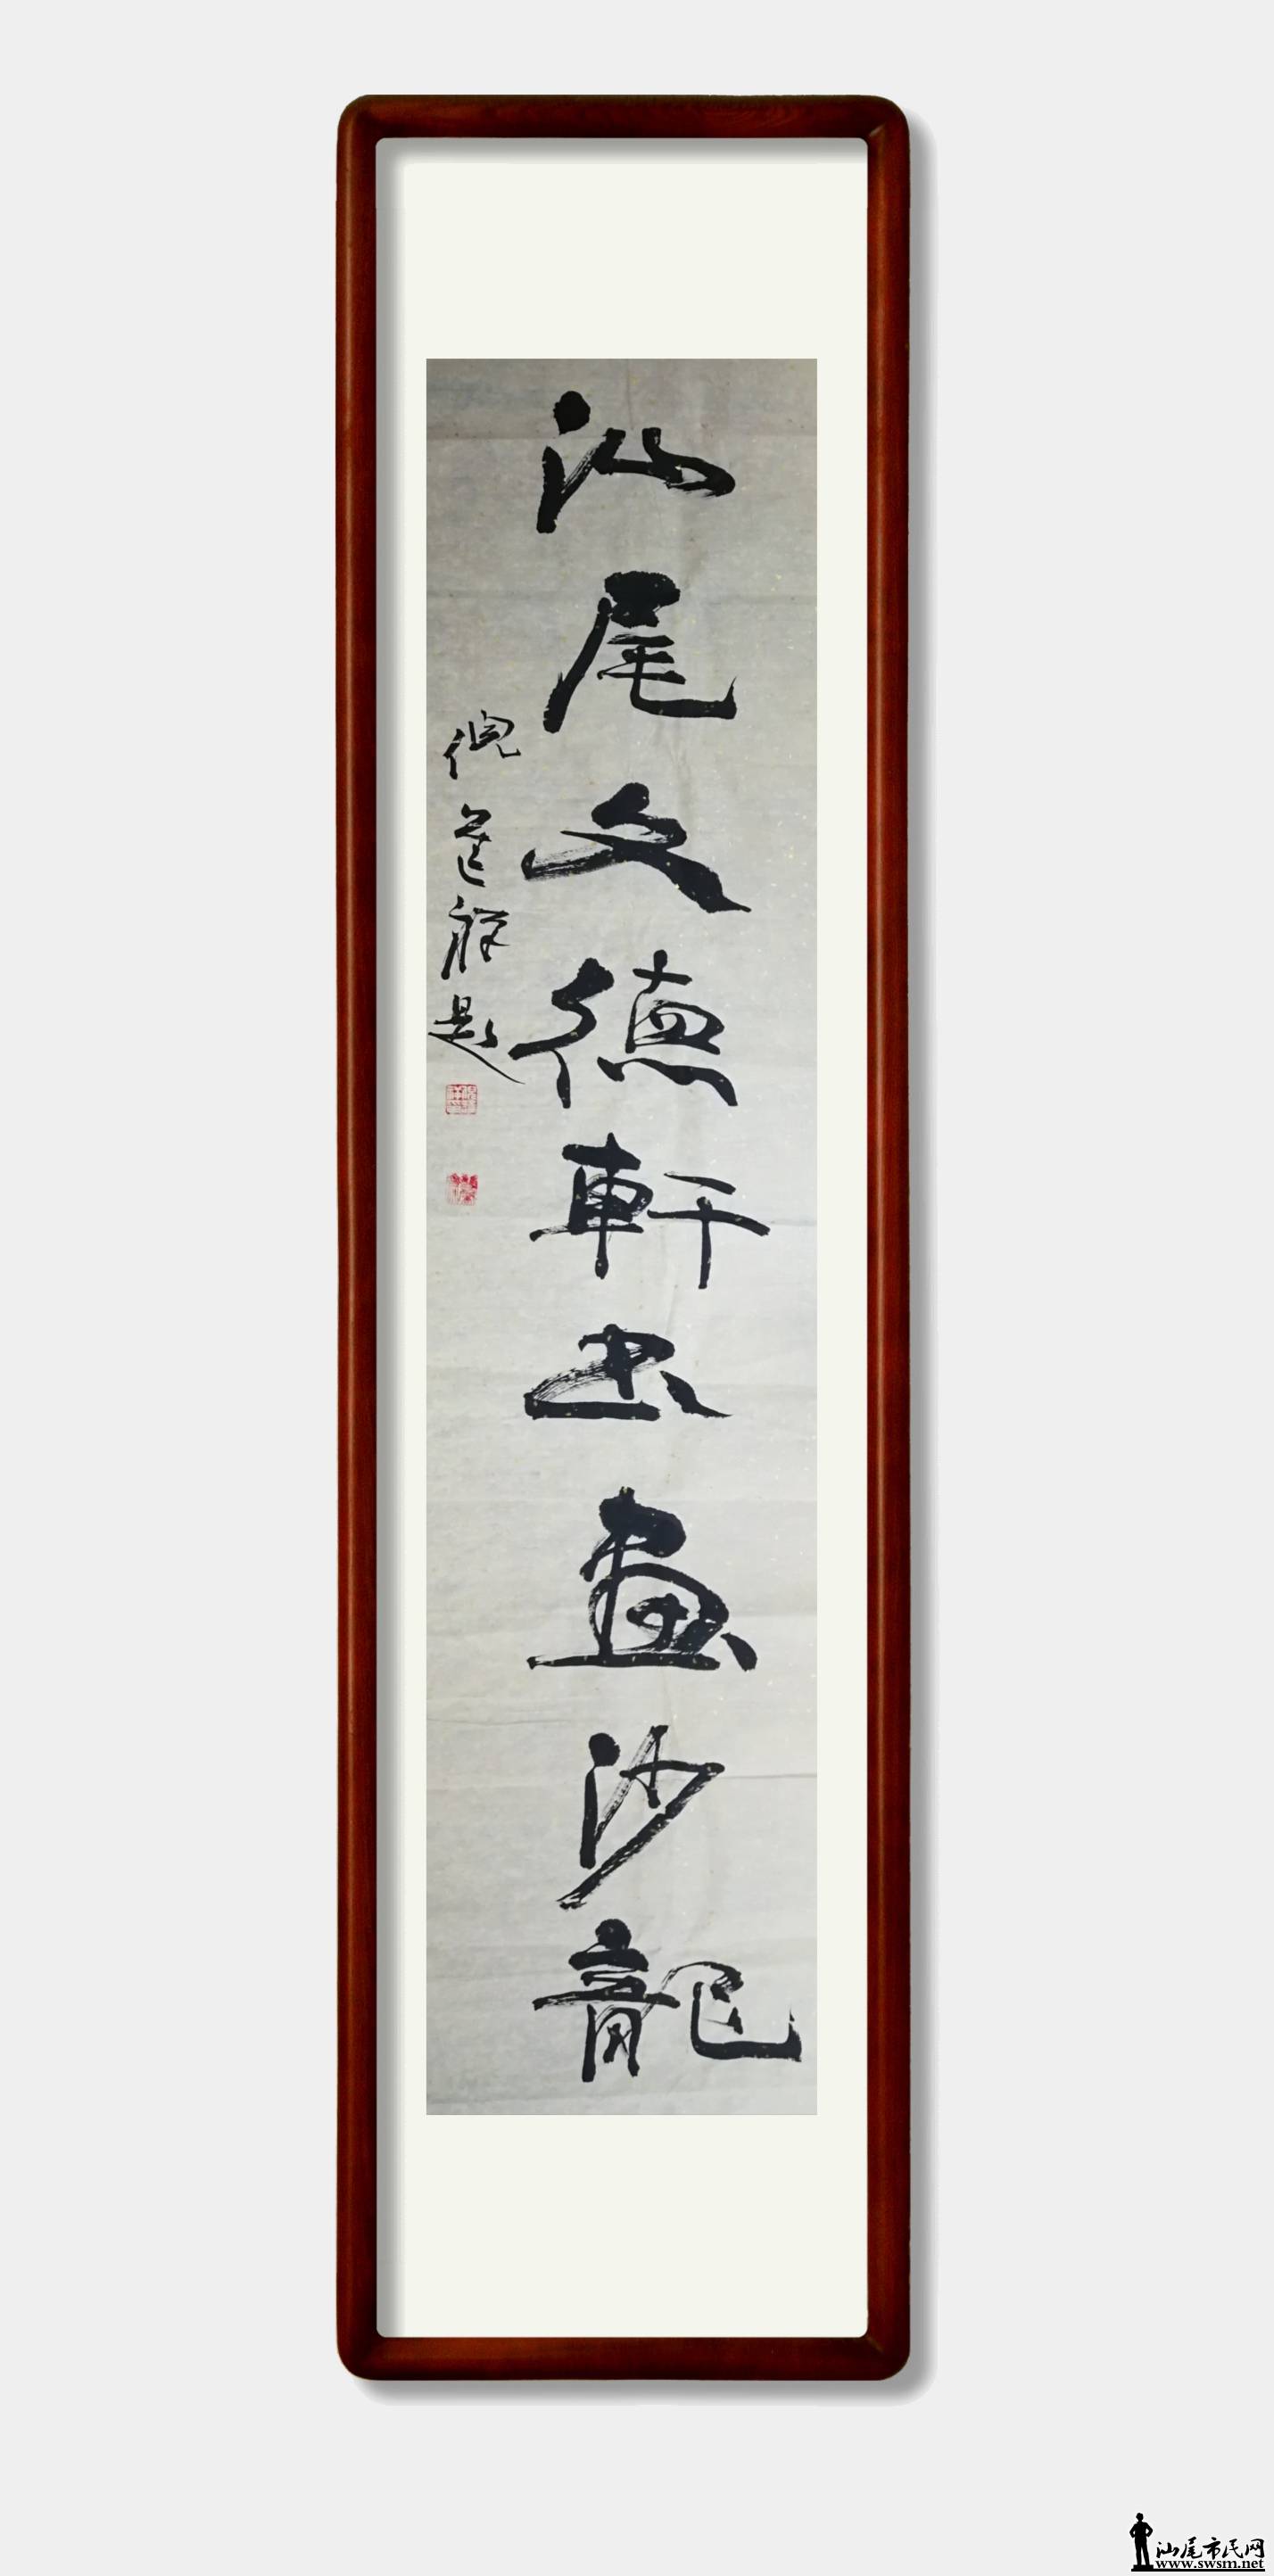 汕尾文德軒书畫沙龍
倪進祥題
汕尾市民网
www.swsm.net